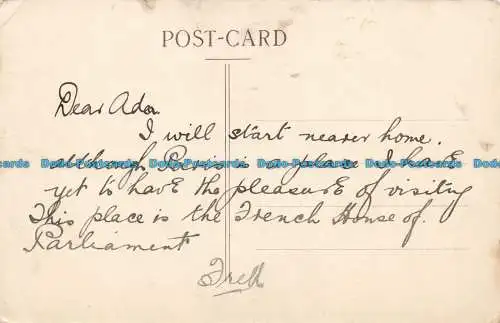 POST-CARD
Dear Ada
I will start nearer home.
although Paris is a place I have
yet to havE the pleasurE of visiting
This place is the French House of.
Parliament
Fred
Dodo-Postcards Dodo-Postcards Dodo-Postcards Dodo-Postcards